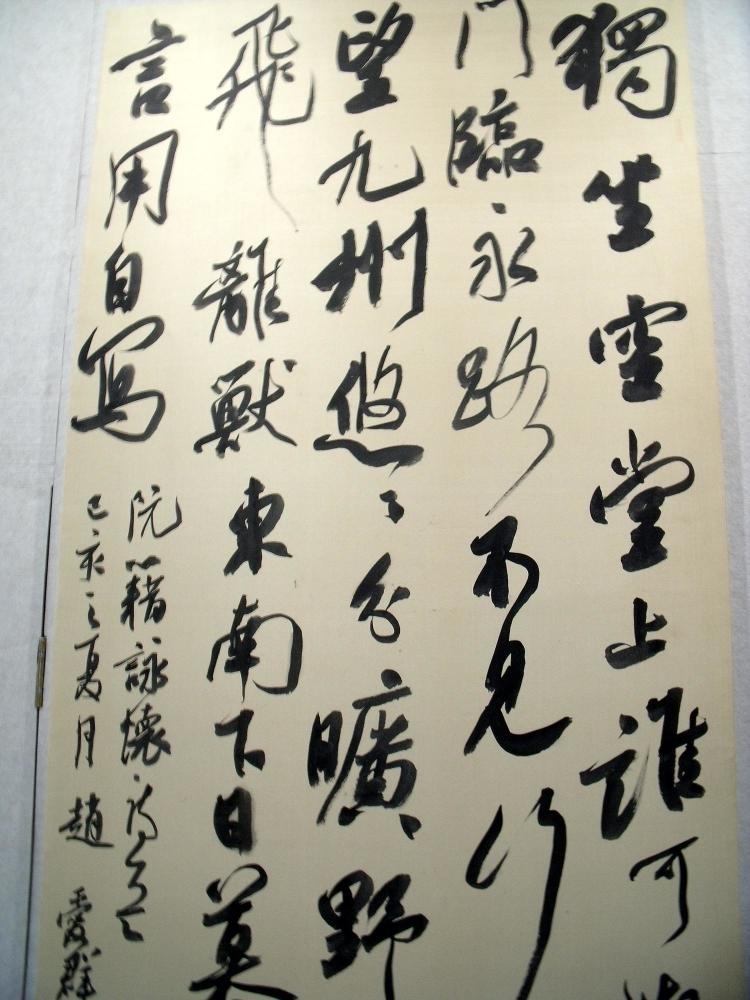 獨坐空堂上誰可
門臨永路不見行
望九州悠々分曠野
飛離獸東南下日暮
言用自寫
阮籍詠懷詩
己亥之夏月趙愛群